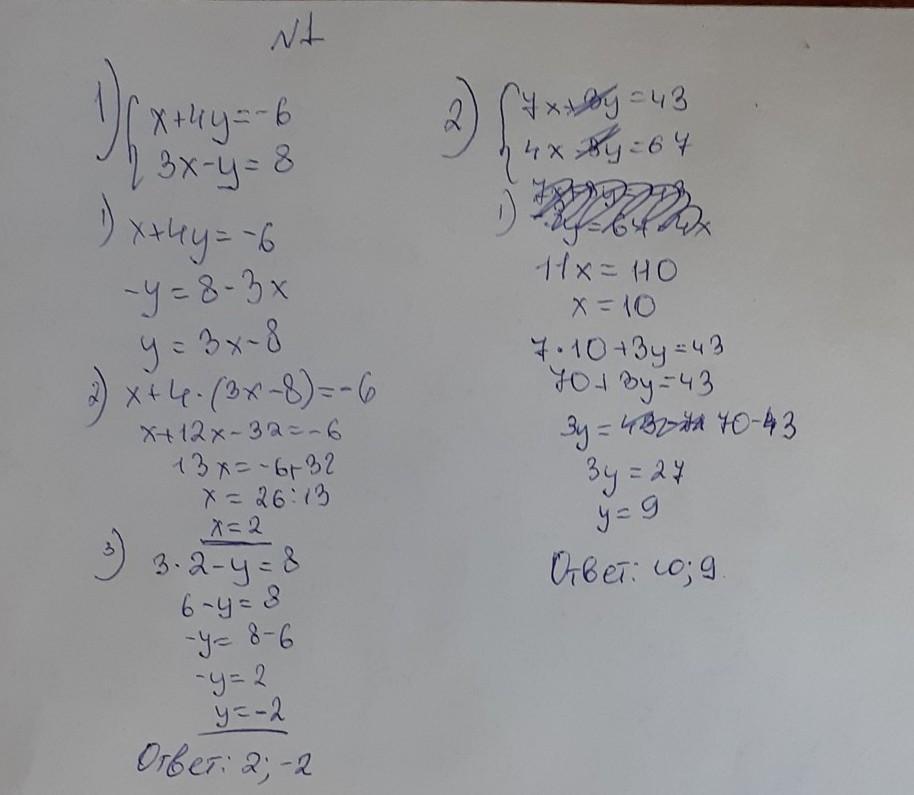 N1
1) { x+4y=-6
3x-y=8
1) x+4y=-6
-y=8-3x
y=3x-8
2) x+4·(3x-8)=-6
x+12x-32=-6
13x=-6+32
x=26:13
x=2
3) 3·2-y=8
6-y=8
-y=8-6
-y=2
y=-2
Ответ: 2; -2
2) { 7x+3y=43
4x-3y=67
1)
11x=110
x=10
7·10+3y=43
70+3y=43
3y= 70-43
3y=27
y=9
Ответ: 10; 9.